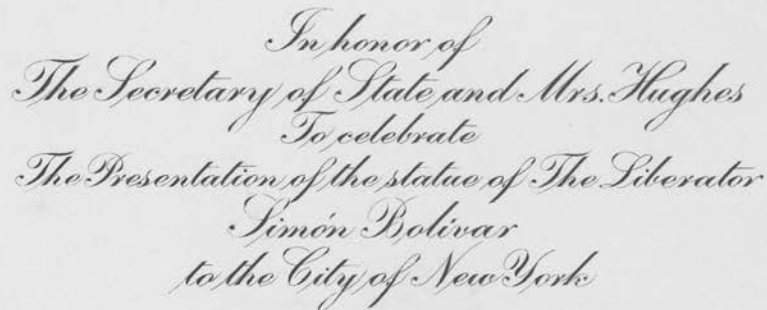 In honor of
The Secretary of State and Mrs. Hughes
To celebrate
The Presentation of the statue of The Liberator
Simón Bolivar
to the City of New York